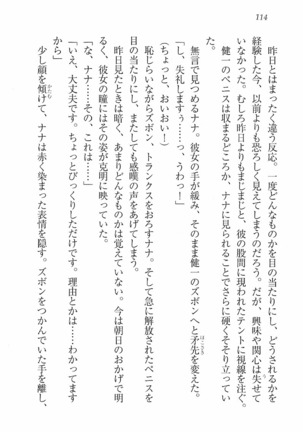 114
昨日とはまったく違う反応。一度どんなものかを目の当たりにし、どうされるかを
経験した今、以前よりも恐ろしく見えてしまうのだろう。だが、興味や関心は失せて
いなかった。むしろ昨日よりもまじまじと、彼の股間に現われたテントに視線を注ぐ。
健一のペニスは収まるどころか、ナナに見られることでさらに硬くそそり立ってい
た。
無言で見つめるナナ。彼女の手が緩み、そのまま健一のズボンへと矛先を変えた。
「し、失礼しますぅ……っ、うわっー」
（ちょっと、おいおい！）
恥じらいながらズボン、トランクスをおろすナナ。そして急に解放されたペニスを
目の当たりにし、またしても感嘆の声をあげてしまう。
昨日見たときは暗く、あまりどんなものかは覚えていない。今は朝日のおかげで明
るく、彼女の瞳にはその姿が克明に映っていた。
「な、ナナ……その、これは……」
「いえ、大丈夫です。ちょっとびっくりしただけです。理由とかは……わかってます
から」
少し顔を傾けて、ナナは赤く染まった表情を隠す。ズボンをつかんでいた手を離し、